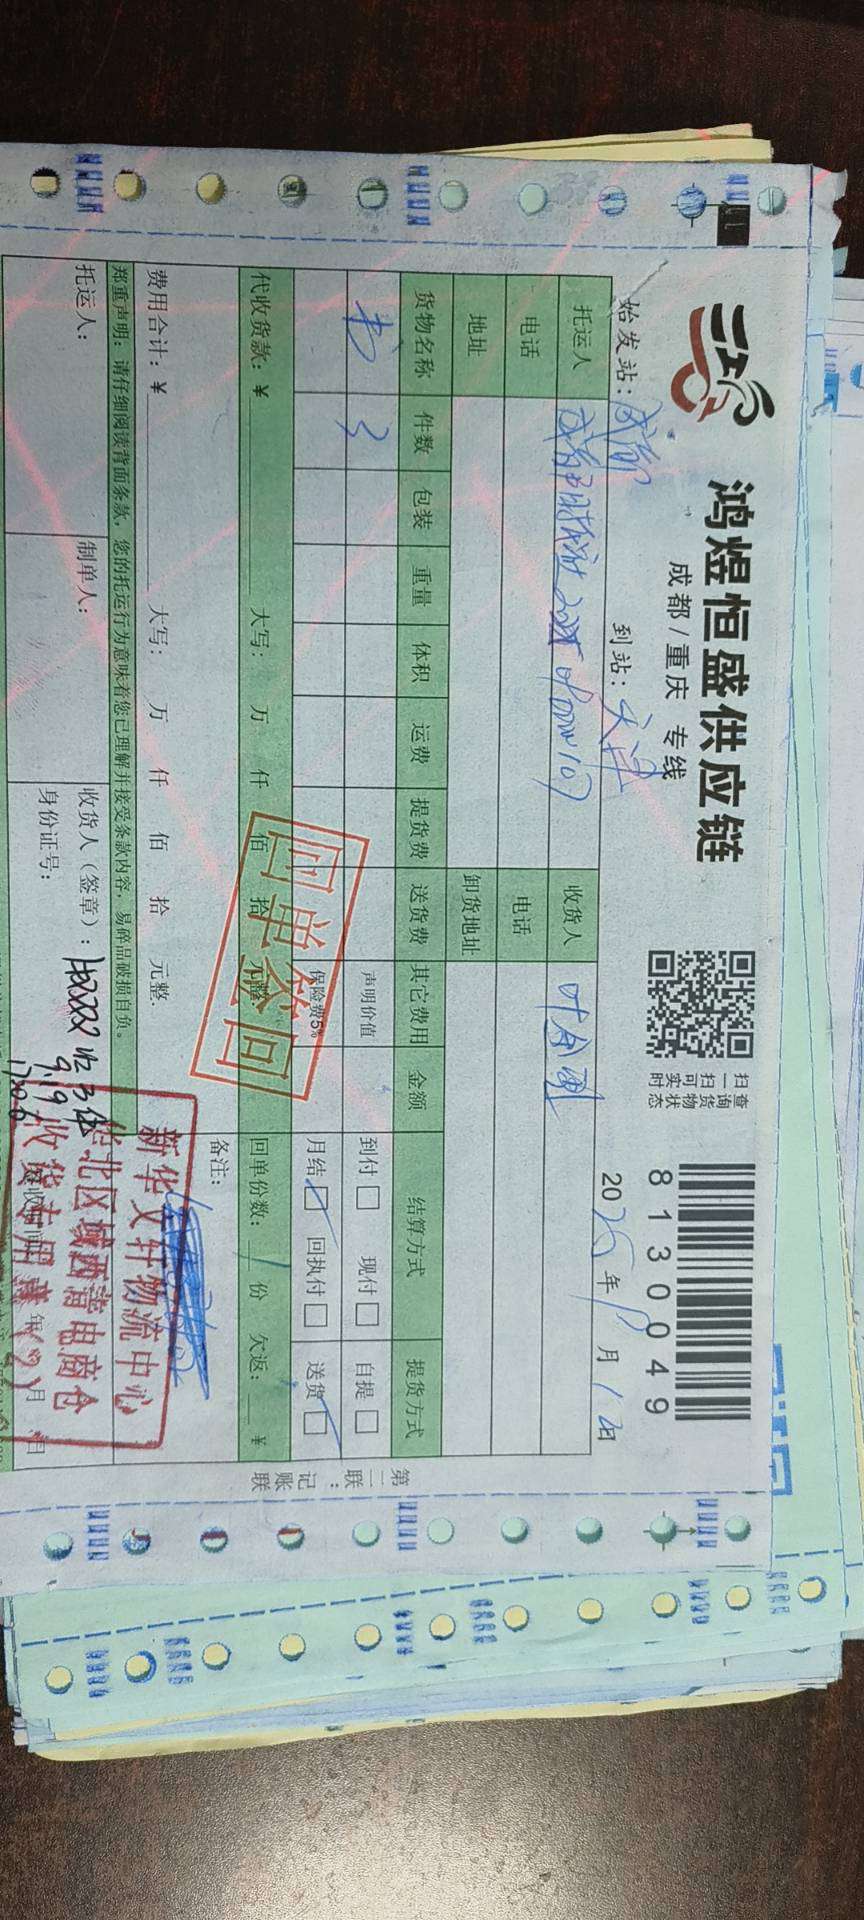 鸿煜恒盛供应链
成都/重庆 专线
扫一扫可实时
查询货物状态
81300049
始发站：成都 到站：天津 2025年 月12日
托运人 收货人 叶合理
电话 电话
地址 卸货地址
货物名称 件数 包装 重量 体积 运费 提货费 送货费 其它费用 金额 结算方式 提货方式
书 3 声明价值 到付 现付 自提
保险费5‰ 月结 回执付 送货
代收货款：¥ 大写： 万 仟 佰 拾 元整 回单份数：1份 欠返： ¥
回单签回
费用合计：¥ 大写： 万 仟 佰 拾 元整 备注：
郑重声明：请仔细阅读背面条款，您的托运行为意味着您已理解并接受条款内容，易碎品破损自负。
托运人： 制单人： 收货人（签章）：
身份证号：
收3件
9.19
新华文轩物流中心
华北区域西青电商仓
收货专用章(2)
年 月 日
第二联：记账联